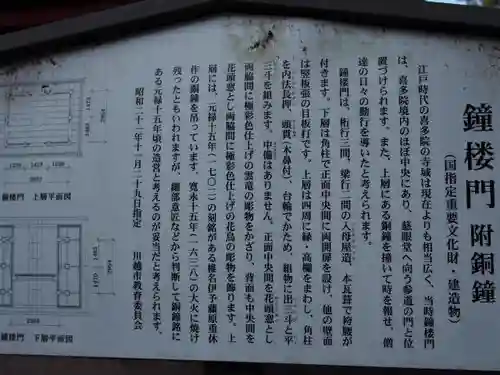 鐘楼門 附銅鐘
(国指定重要文化財・建造物)
江戸時代の喜多院の寺域は現在よりも相当広く、当時鐘楼門
は、喜多院境内のほぼ中央にあり、慈眼堂へ向う参道の門と位
置づけられます。また、上層にある銅鐘を撞いて時を報せ、僧
達の日々の勤行を導いたと考えられます。
鐘楼門は、桁行三間、梁行二間の入母屋造、本瓦葺で袴腰が
付きます。下層は角柱で正面中央間に両開扉を設け、他の壁面
は竪板張の目板打です。上層は四周に縁・高欄をまわし、角柱
を内法長押、頭貫(木鼻付)、台輪でかため、組物に出三斗と平
三斗を組みます。中備はありません。正面中央間を花頭窓とし
両脇間に極彩色仕上げの雲竜の彫物をかざり、背面も中央間を
花頭窓とし両脇間に極彩色仕上げの花鳥の彫物を飾ります。上
層には、元禄十五年(一七〇二)の刻銘がある椎名伊予藤原重休
作の銅鐘を吊っています。寛永十五年(一六三八)の大火に焼け
残ったともいわれますが、細部意匠などから判断して銅鐘銘に
ある元禄十五年頃の造営と考えるのが妥当だと考えられます。
昭和二十一年十一月二十九日指定 川越市教育委員会
鐘楼門 上層平面図
鐘楼門 下層平面図